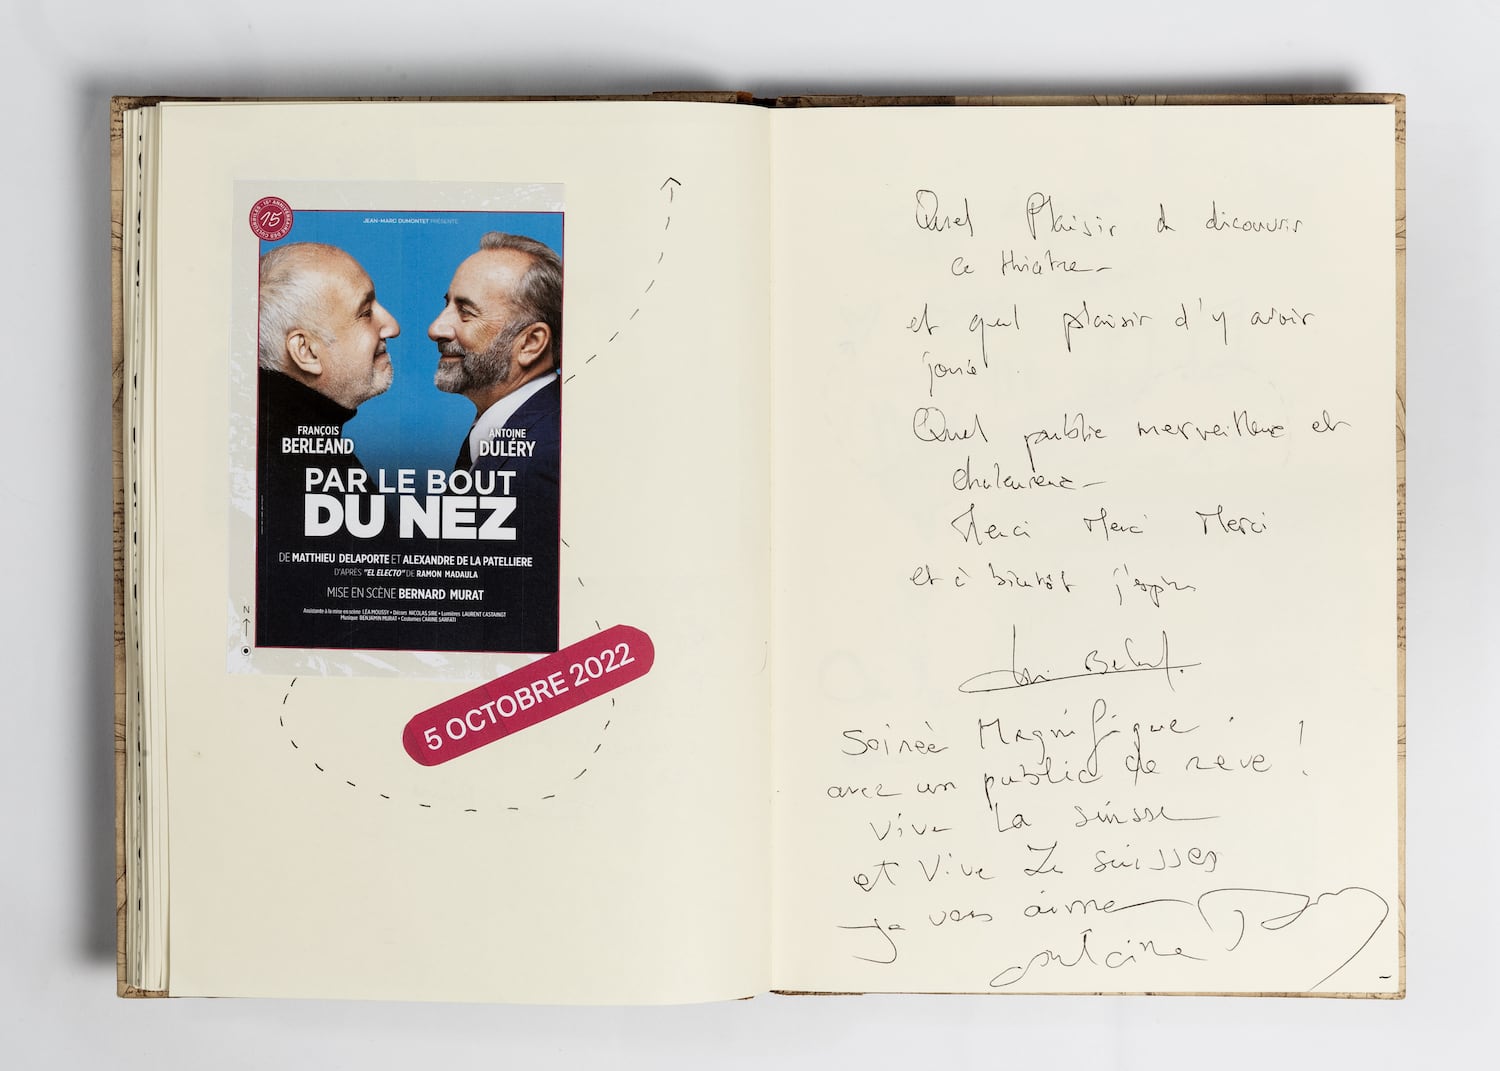 15e ANNIVERSAIRE DES CULTURIALES
15
JEAN-MARC DUMONTET PRÉSENTE
FRANÇOIS
BERLEAND
ANTOINE
DULÉRY
PAR LE BOUT
DU NEZ
DE MATTHIEU DELAPORTE ET ALEXANDRE DE LA PATELLIERE
D'APRÈS "EL ELECTO" DE RAMON MADAULA
MISE EN SCÈNE BERNARD MURAT
Assistante à la mise en scène LÉA MOUSSY • Décors NICOLAS SIRE • Lumières LAURENT CASTAINGT
Musique BENJAMIN MURAT • Costumes CARINE SARFATI
N
5 OCTOBRE 2022
Quel Plaisir de découvrir
ce théatre –
et quel plaisir d'y avoir
joué.
Quel public merveilleux et
chaleureux –
Merci Merci Merci
et à bientôt j'espère
Soirée Magnifique
avec un public de rêve !
Vive la suisse
et Vive Les suisses
Je vous aime
Antoine